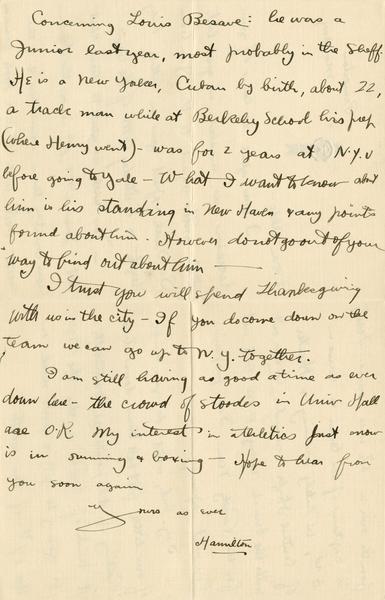 Concerning Louis Besave: he was a
Junior last year, most probably in the Sheff.
He is a New Yorker, Cuban by birth, about 22,
a track man while at Berkeley School his prep
(where Henry went) - was for 2 years at N.Y.U
before going to Yale - What I want to know about
him is his standing in New Haven & any points
found about him. However do not go out of your
way to find out about him —
I trust you will spend Thanksgiving
with us in the city - If you do come down on the
team we can go up to N.Y. together.
I am still having as good a time as ever
down here - the crowd of stoodes in Univ Hall
are O.K. My interest in athletics just now
is in running & boxing - Hope to hear from
you soon again
Yours as ever
Hamilton